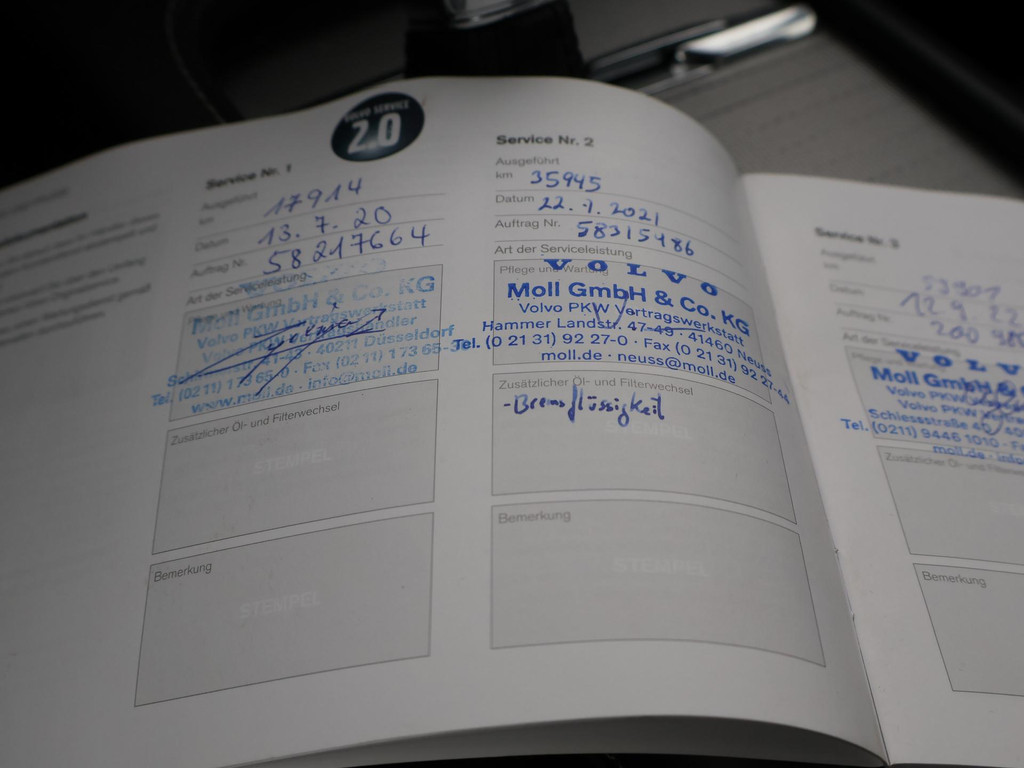 VOLVO SERVICE
2.0
Service Nr. 1
Ausgeführt
km 17914
Datum 13.7.20
Auftrag Nr. 58217664
Art der Serviceleistung
Moll GmbH & Co. KG
Volvo PKW Vertragswerkstatt
40211 Düsseldorf
Tel. (02 11) 1 73 65-0 · Fax (02 11) 1 73 65-3
www.moll.de · info@moll.de
Zusätzlicher Öl- und Filterwechsel
STEMPEL
Bemerkung
STEMPEL
Service Nr. 2
Ausgeführt
km 35945
Datum 22.7.2021
Auftrag Nr. 58315486
Art der Serviceleistung
Pflege und Wartung
VOLVO
Moll GmbH & Co. KG
Volvo PKW Vertragswerkstatt
Hammer Landstr. 47-49 · 41460 Neuss
Tel. (0 21 31) 92 27-0 · Fax (0 21 31) 92 27-44
moll.de · neuss@moll.de
Zusätzlicher Öl- und Filterwechsel
-Bremsflüssigkeit
STEMPEL
Bemerkung
STEMPEL
Service Nr. 3
Ausgeführt
km
Datum
Auftrag Nr.
Art der Serviceleistung
VOLVO
Moll GmbH &
Volvo PKW
Volvo PKW
Schiessstraße
Tel. (0211) 9446 1010 · Fax
moll.de · info
Zusätzlicher Öl- und Filterwechsel
Bemerkung